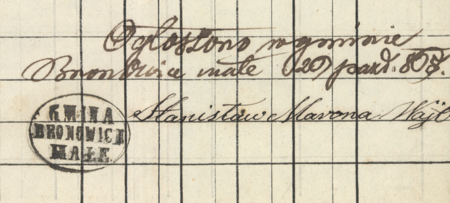 Ogłoszono w gminie
Bronowice małe 29 paźd. 867.
Stanisław Marona Wójt
GMINA
BRONOWICE
MAŁE